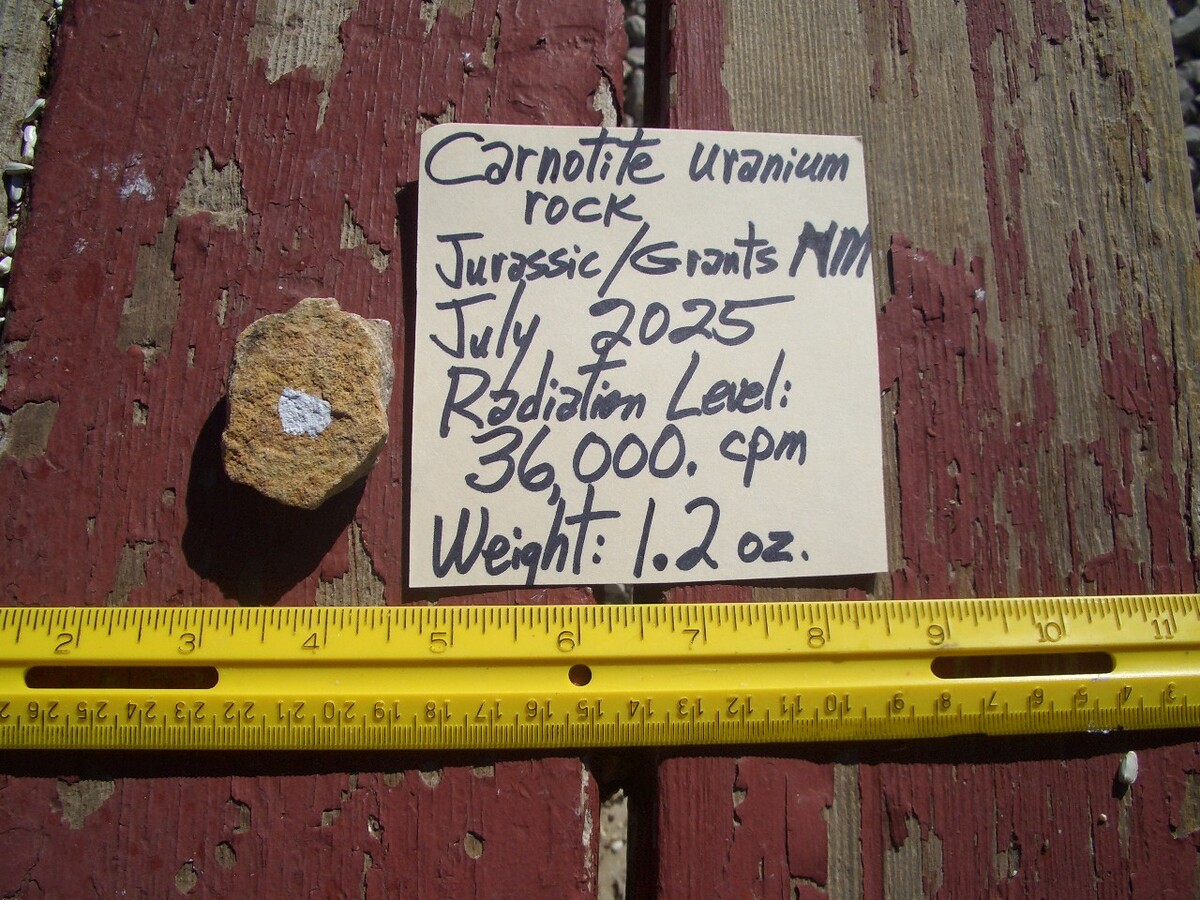 Carnotite uranium
rock
Jurassic/Grants NM
July 2025
Radiation Level:
36,000. cpm
Weight: 1.2 oz.
2 3 4 5 6 7 8 9 10 11
26 25 24 23 22 21 20 19 18 17 16 15 14 13 12 11 10 9 8 7 6 5 4 3